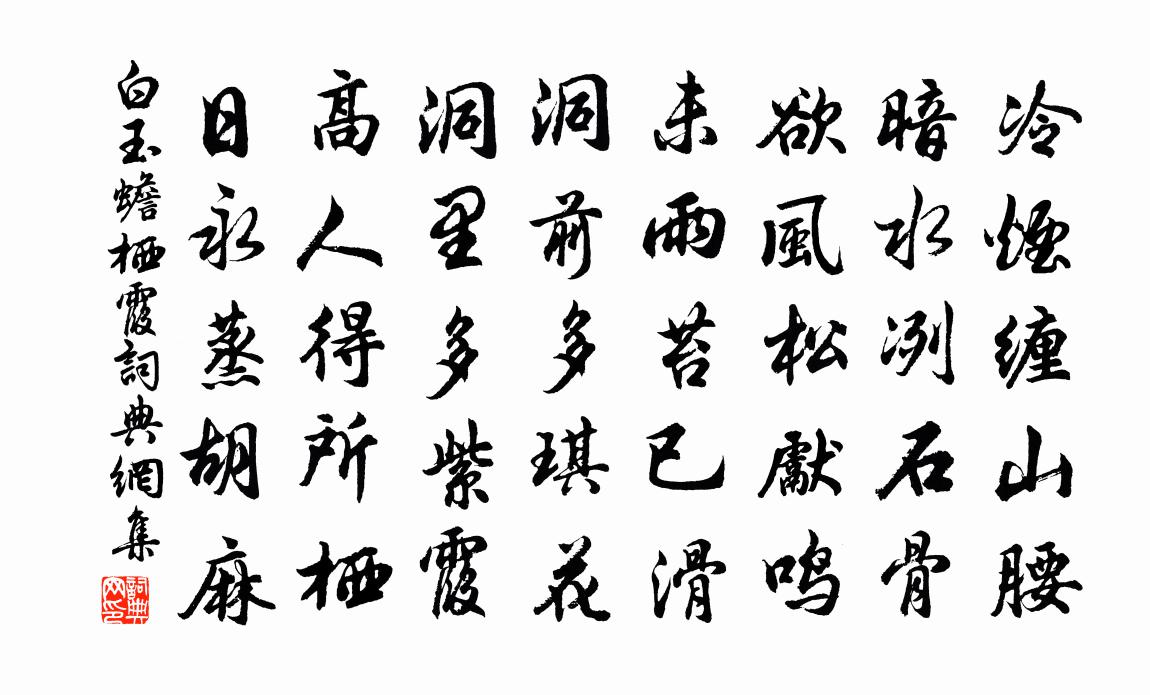 冷煙纏山腰
暗水冽石骨
欲風松獻鸣
未雨苔已滑
洞前多琪花
洞里多紫霞
高人得所栖
日永蒸胡麻
白玉蟾栖霞詞典網集
詞典
网印